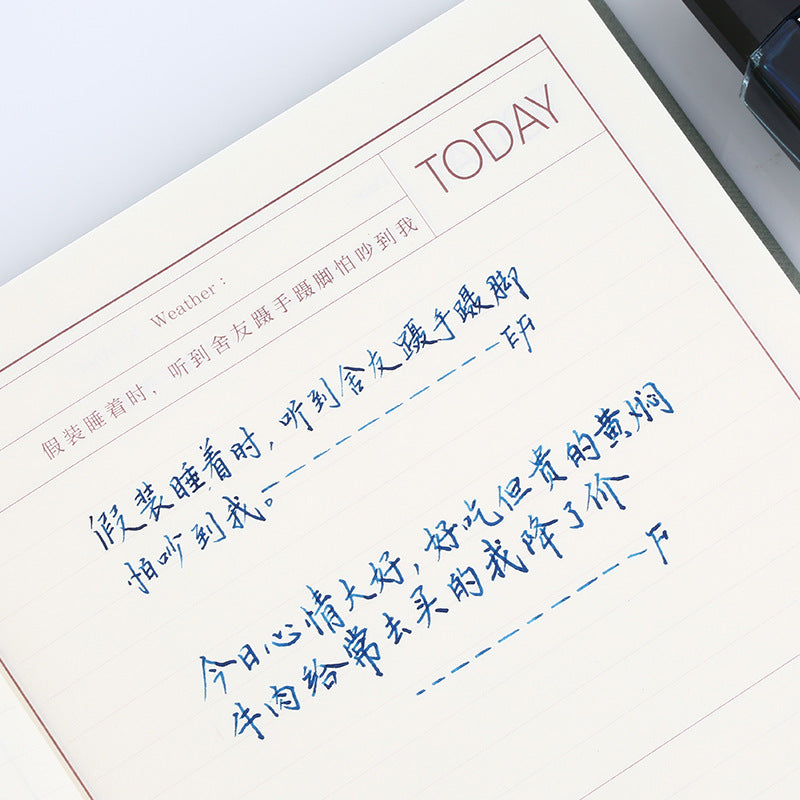 TODAY
Weather:
假装睡着时,听到舍友蹑手蹑脚怕吵到我
假装睡着时,听到舍友蹑手蹑脚
怕吵到我。---------- EF
今日心情大好,好吃但贵的黄焖
牛肉给常去买的我降了价
---------- F